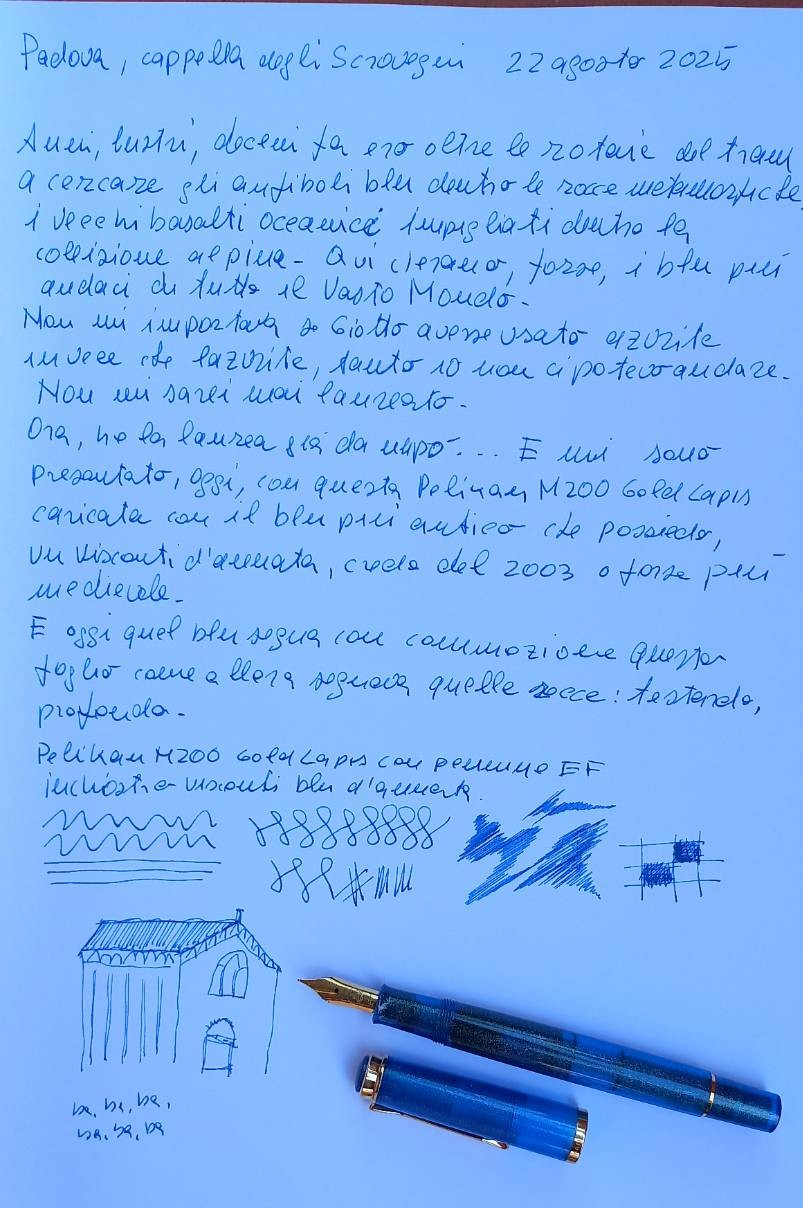 Padova, cappella degli Scrovegni 22 agosto 2025
Anni, lustri, decenni fa ero oltre le rotaie del tram
a cercare gli anfiboli blu dentro le rocce metamorfiche,
i vecchi basalti oceanici impigliati dentro la
collisione alpina. Qui c'erano, forse, i blu più
audaci di tutto il Vasto Mondo.
Non mi importava se Giotto avesse usato azzurite
invece che lazurite, tanto io non ci potevo andare.
Non mi sarei mai laureato.
Ora, ho la laurea già da un po'... E mi sono
presentato, oggi, con questa Pelikan M200 Gold Lapis
caricata con il blu più antico che possiedo,
un Visconti d'annata, credo del 2003 o forse più
medievale.
E oggi quel blu segna con commozione questo
foglio come allora segnava quelle rocce: testardo,
profondo.
Pelikan M200 Gold Lapis con pennino EF
inchiostro Visconti blu d'annata.